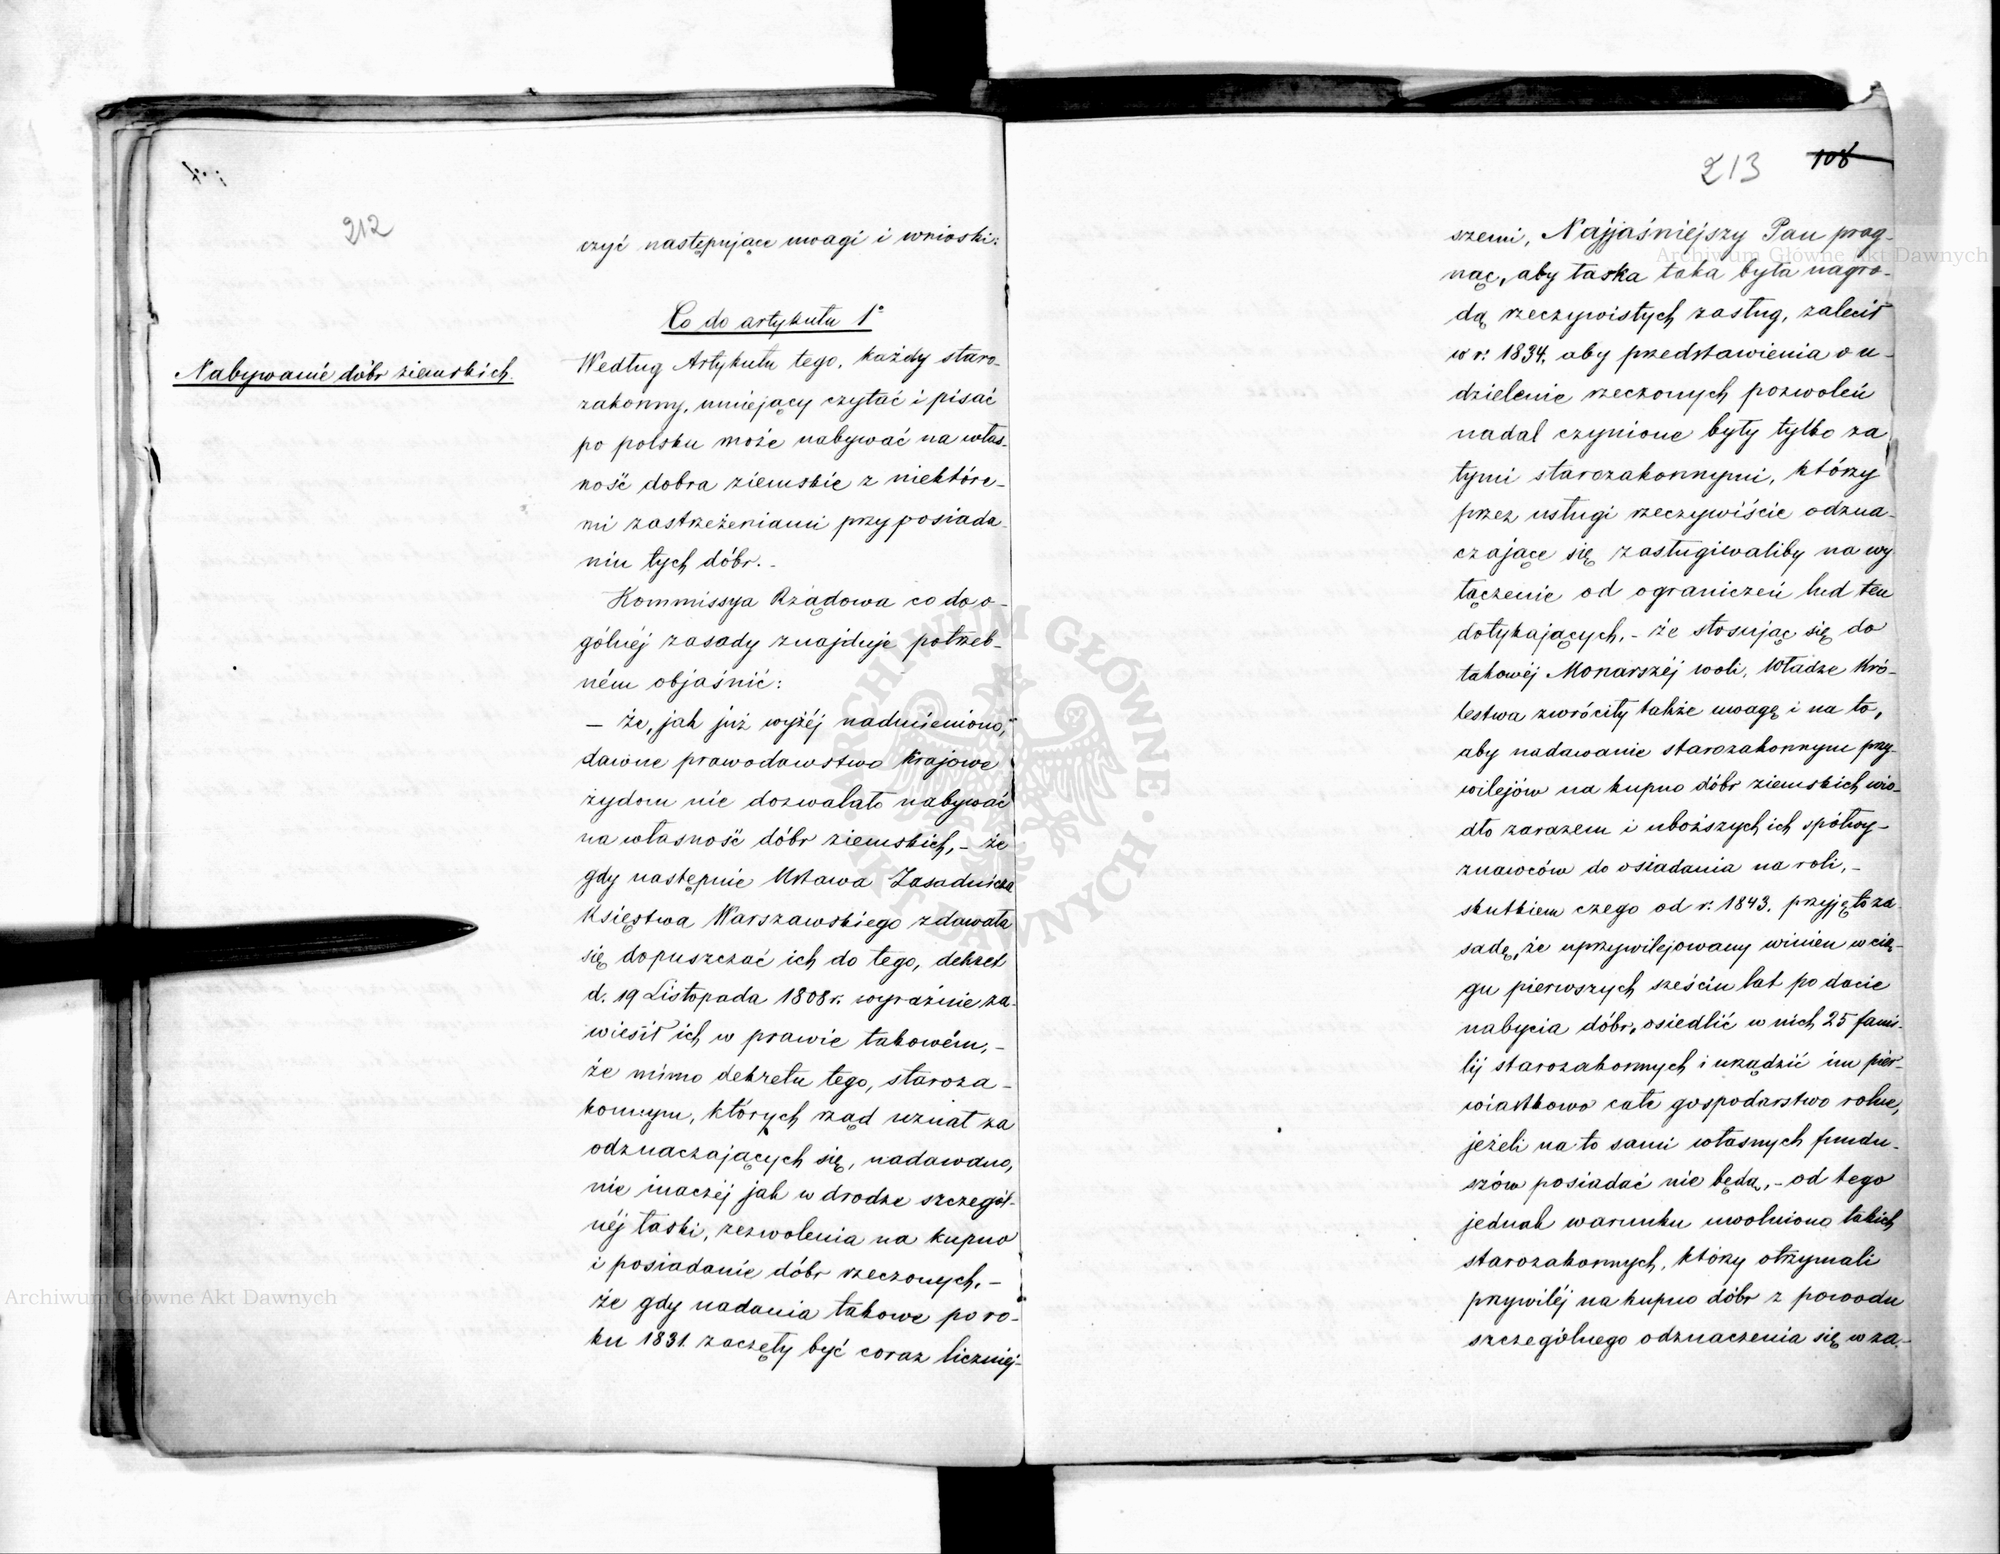 212
czyć następujące uwagi i wnioski:
Co do artykułu 1º
Nabywanie dóbr ziemskich.
Według Artykułu tego, każdy staro-
zakonny, umiejący czytać i pisać
po polsku może nabywać na włas-
ność dobra ziemskie z niektóre-
mi zastrzeżeniami przy posiada-
niu tych dóbr.-
Kommissya Rządowa co do o-
gólnéj zasady znajduje potrzeb-
ném objaśnić:
— że, jak już wyżéj nadmieniono,
dawne prawodawstwo krajowe
żydom nie dozwalało nabywać
na własność dóbr ziemskich,- że
gdy następnie Ustawa Zasadnicza
Księstwa Warszawskiego zdawała
się dopuszczać ich do tego, dekret
d. 19 Listopada 1808 r. wyraźnie za-
wiesił ich w prawie takowém,-
że mimo dekretu tego, staroza-
konnym, których rząd uznał za
odznaczających się, nadawano,
nie inaczéj jak w drodze szczegól-
néj łaski, zezwolenia na kupno
i posiadanie dóbr rzeczonych,-
że gdy nadania takowe po ro-
ku 1831. zaczęły być coraz liczniej-
213 108
szemi, Najjaśniejszy Pan prag-
nąc, aby łaska taka była nagro-
dą rzeczywistych zasług, zalecił
w r. 1834. aby przedstawienia o u-
dzielenie rzeczonych pozwoleń
nadal czynione były tylko za
tymi starozakonnymi, którzy
przez usługi rzeczywiście odzna-
czające się zasługiwaliby na wy
łączenie od ograniczeń lud ten
dotykających,- że stosując się do
takowéj Monarszéj woli, Władze Kró-
lestwa zwróciły także uwagę i na to,
aby nadawanie starozakonnym przy-
wilejów na kupno dóbr ziemskich wio-
dło zarazem i uboższych ich spółwy-
znawców do osiadania na roli,-
skutkiem czego od r. 1843. przyjęto za-
sadę, że uprzywilejowany winien w cią-
gu pierwszych sześciu lat po dacie
nabycia dóbr, osiedlić w nich 25 fami-
lij starozakonnych i urządzić im pier-
wiastkowo całe gospodarstwo rolne,
jeżeli na to sami własnych fundu-
szów posiadać nie będą,- od tego
jednak warunku uwolniono takich
starozakonnych, którzy otrzymali
przywiléj na kupno dóbr z powodu
szczególnego odznaczenia się w za-
Archiwum Główne Akt Dawnych
Archiwum Główne Akt Dawnych
ARCHIWUM GŁÓWNE AKT DAWNYCH